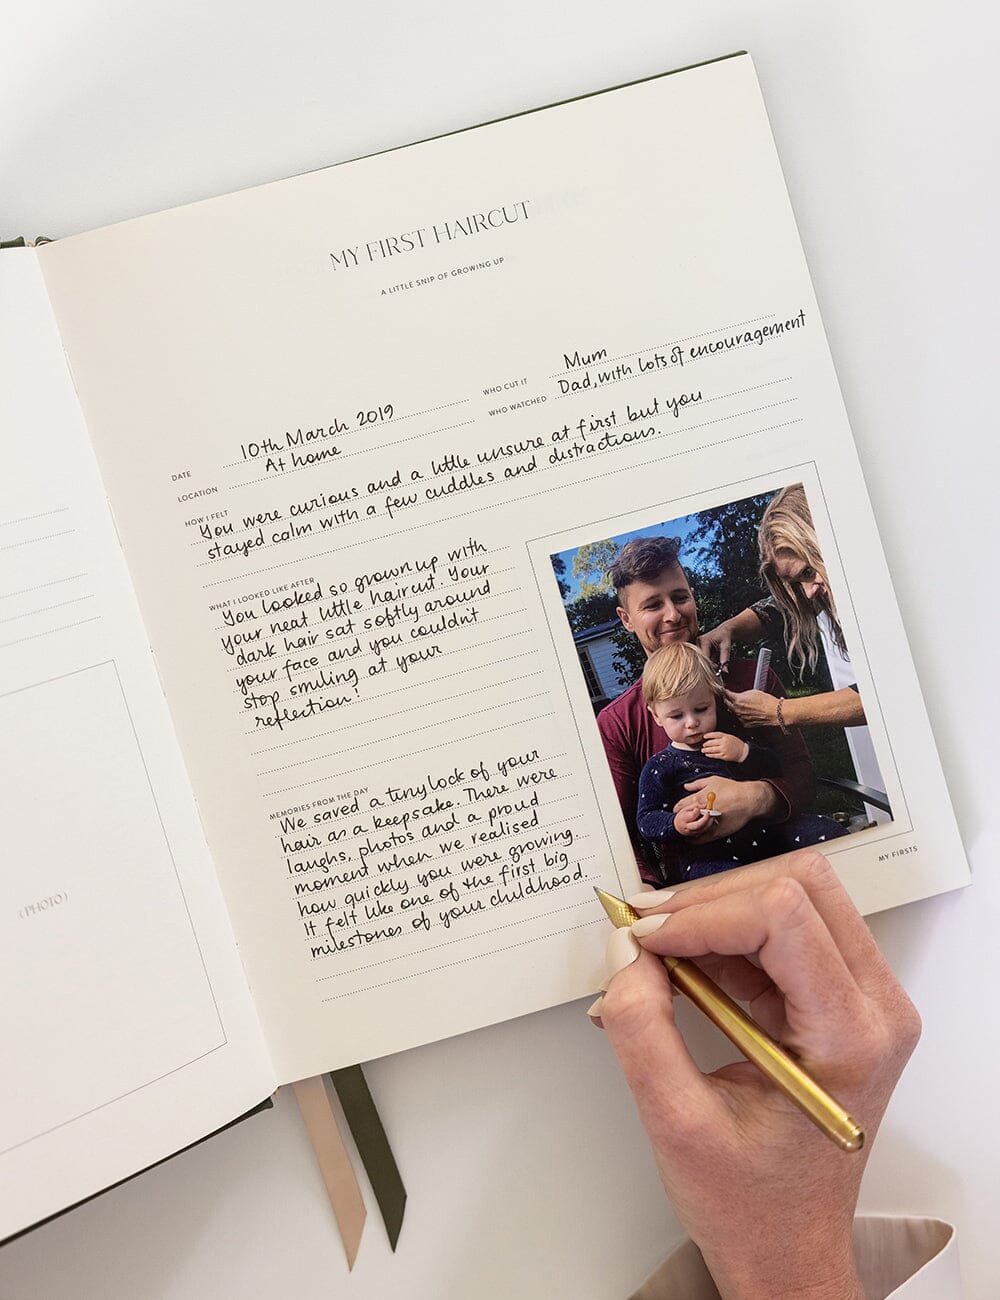 MY FIRST HAIRCUT
A LITTLE SNIP OF GROWING UP
DATE 10th March 2019
LOCATION At home
WHO CUT IT Mum
WHO WATCHED Dad, with lots of encouragement
HOW I FELT
You were curious and a little unsure at first but you
stayed calm with a few cuddles and distractions.
WHAT I LOOKED LIKE AFTER
You looked so grown up with
your neat little haircut. Your
dark hair sat softly around
your face and you couldn't
stop smiling at your
reflection!
MEMORIES FROM THE DAY
We saved a tiny lock of your
hair as a keepsake. There were
laughs, photos and a proud
moment when we realised
how quickly you were growing.
It felt like one of the first big
milestones of your childhood.
MY FIRSTS
(PHOTO)